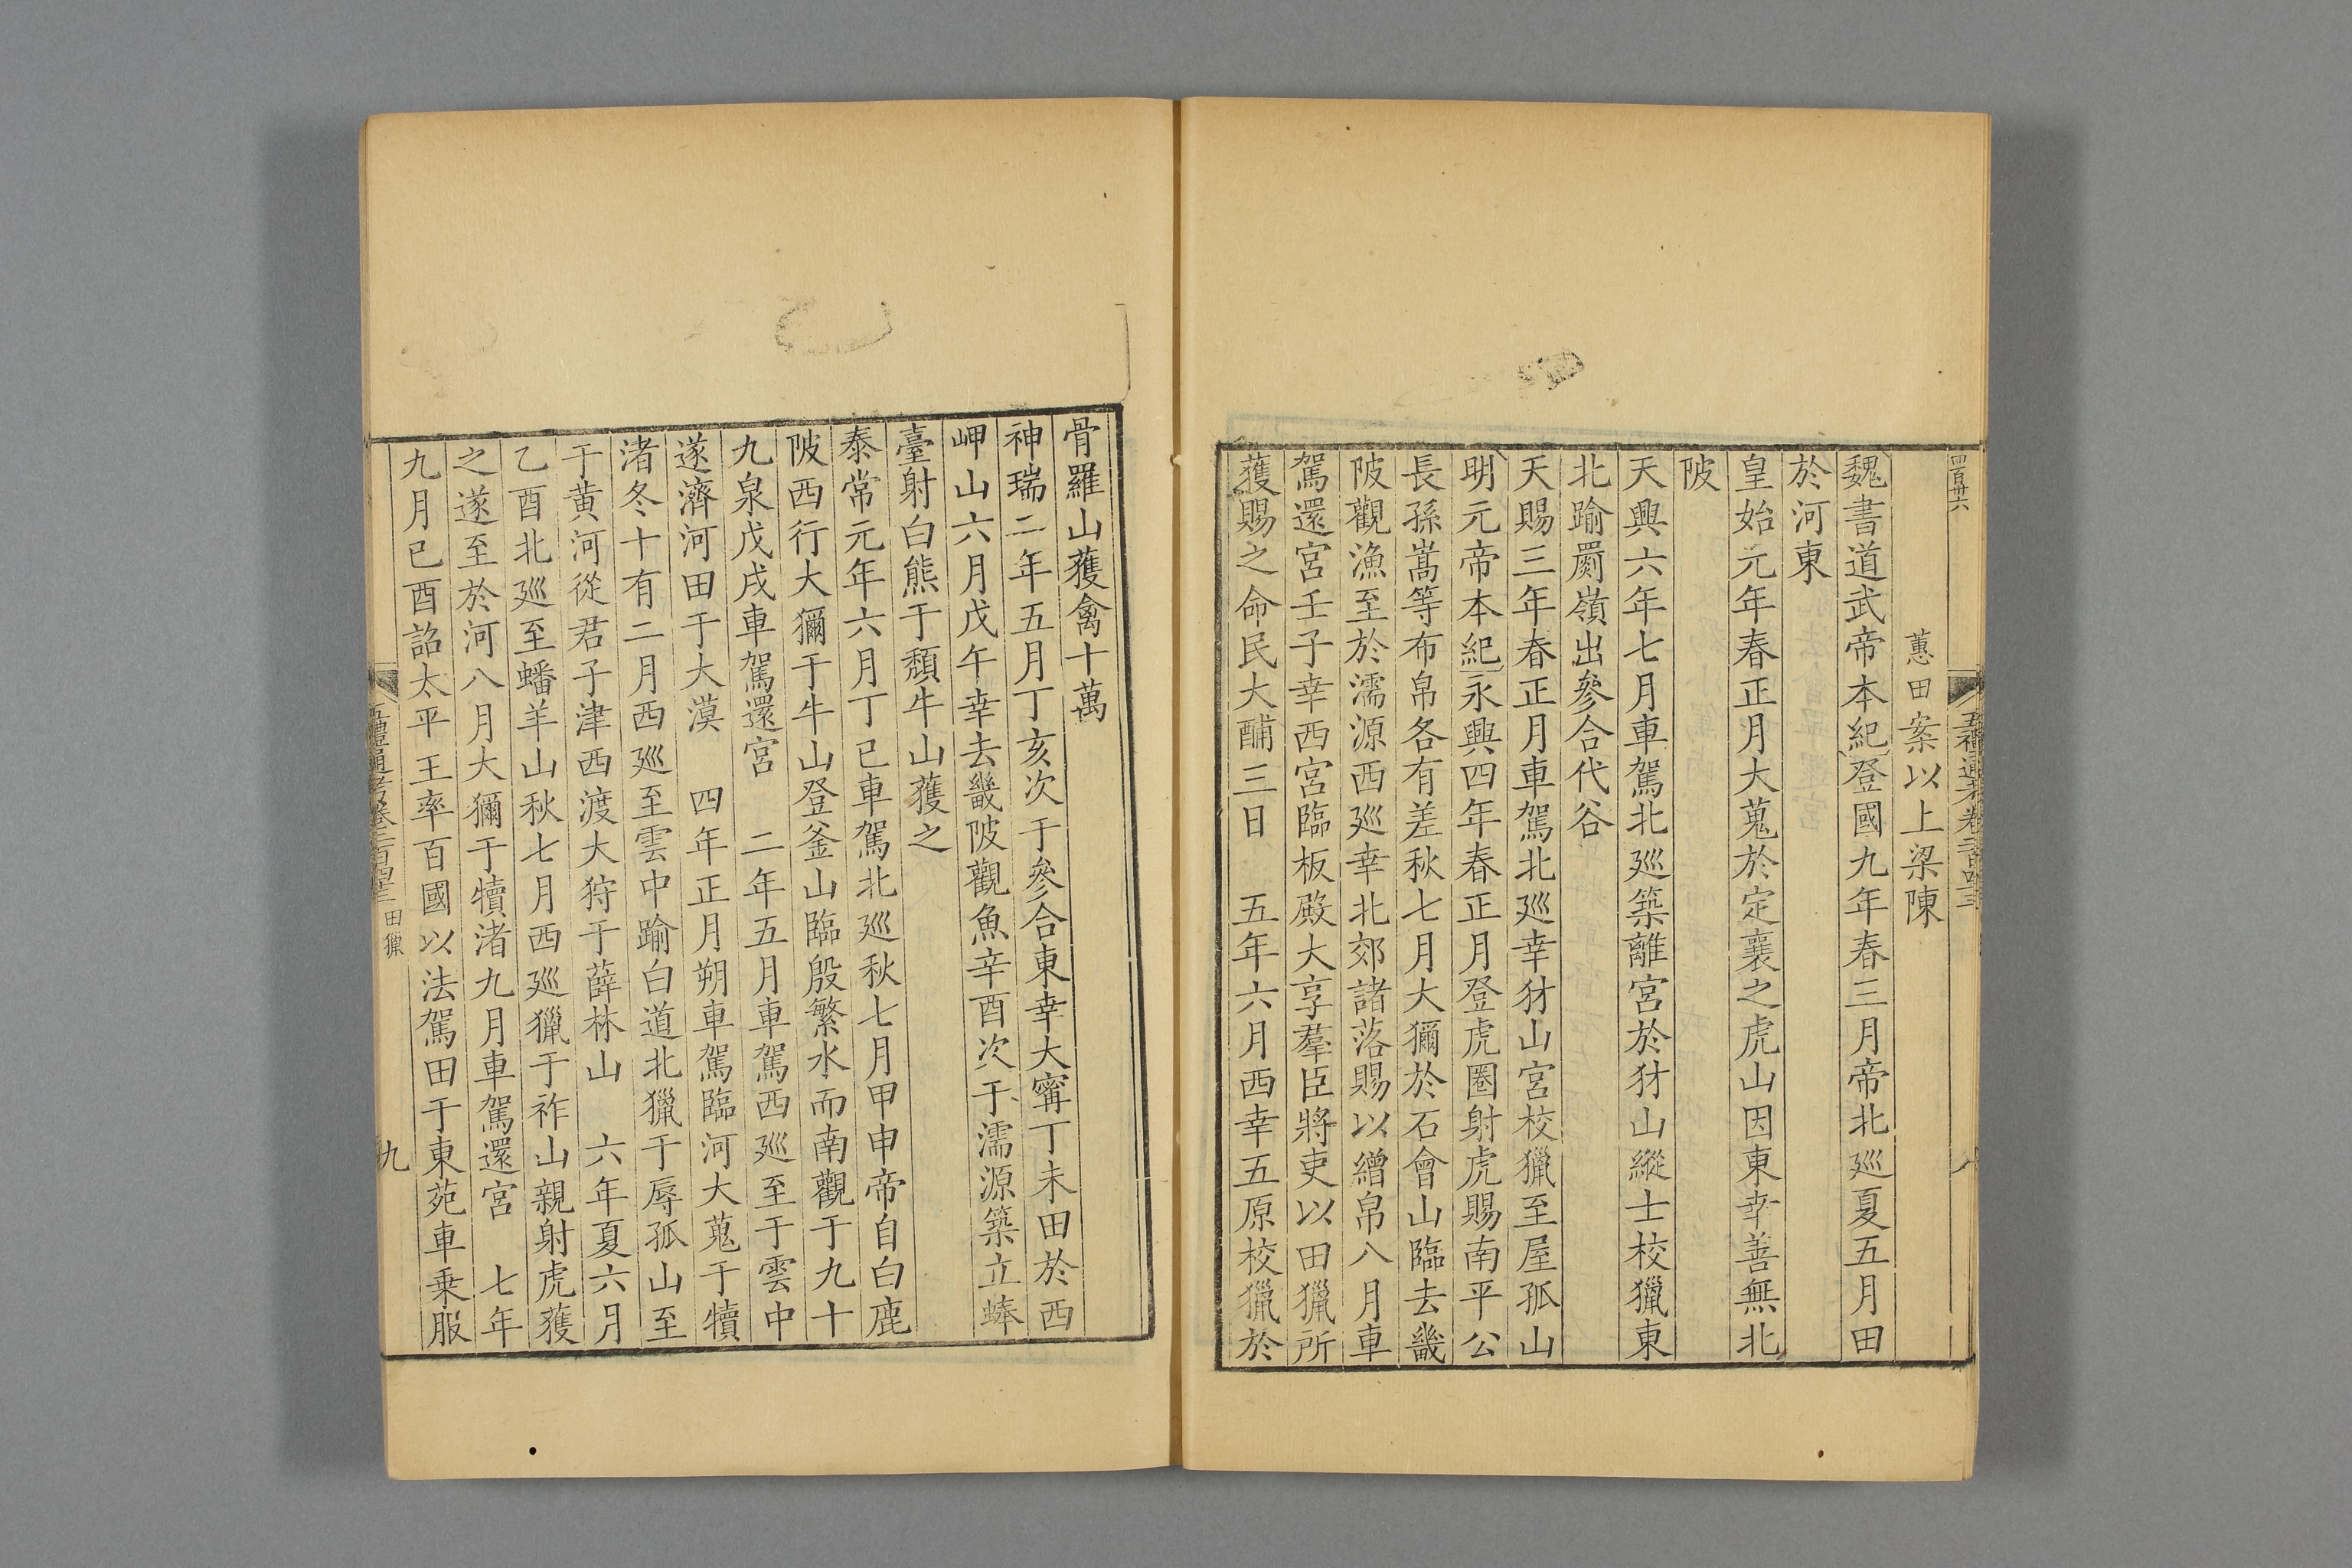 四百廿六
五禮通考卷二百四十三
八
蕙田案以上梁陳
魏書道武帝本紀登國九年春三月帝北廵夏五月田
於河東
皇始元年春正月大蒐於定襄之虎山因東幸善無北
陂
天興六年七月車駕北廵築離宮於犲山縱士校獵東
北踰罽嶺出參合代谷
天賜三年春正月車駕北廵幸犲山宮校獵至屋孤山
明元帝本紀永興四年春正月登虎圈射虎賜南平公
長孫嵩等布帛各有差秋七月大獮於石會山臨去畿
陂觀漁至於濡源西廵幸北郊諸落賜以繒帛八月車
駕還宮壬子幸西宮臨板殿大享羣臣將吏以田獵所
獲賜之命民大酺三日　五年六月西幸五原校獵於
骨羅山獲禽十萬
神瑞二年五月丁亥次于參合東幸大甯丁未田於西
岬山六月戊午幸去畿陂觀魚辛酉次于濡源築立蜯
臺射白熊于頹牛山獲之
泰常元年六月丁巳車駕北廵秋七月甲申帝自白鹿
陂西行大獮于牛山登釜山臨殷繁水而南觀于九十
九泉戊戌車駕還宮　二年五月車駕西廵至于雲中
遂濟河田于大漠　四年正月朔車駕臨河大蒐于犢
渚冬十有二月西廵至雲中踰白道北獵于辱孤山至
于黄河從君子津西渡大狩于薛林山　六年夏六月
乙酉北廵至蟠羊山秋七月西廵獵于祚山親射虎獲
之遂至於河八月大獮于犢渚九月車駕還宮　七年
九月己酉詔太平王率百國以法駕田于東苑車乗服
五禮通考卷二百四十三 田獵
九